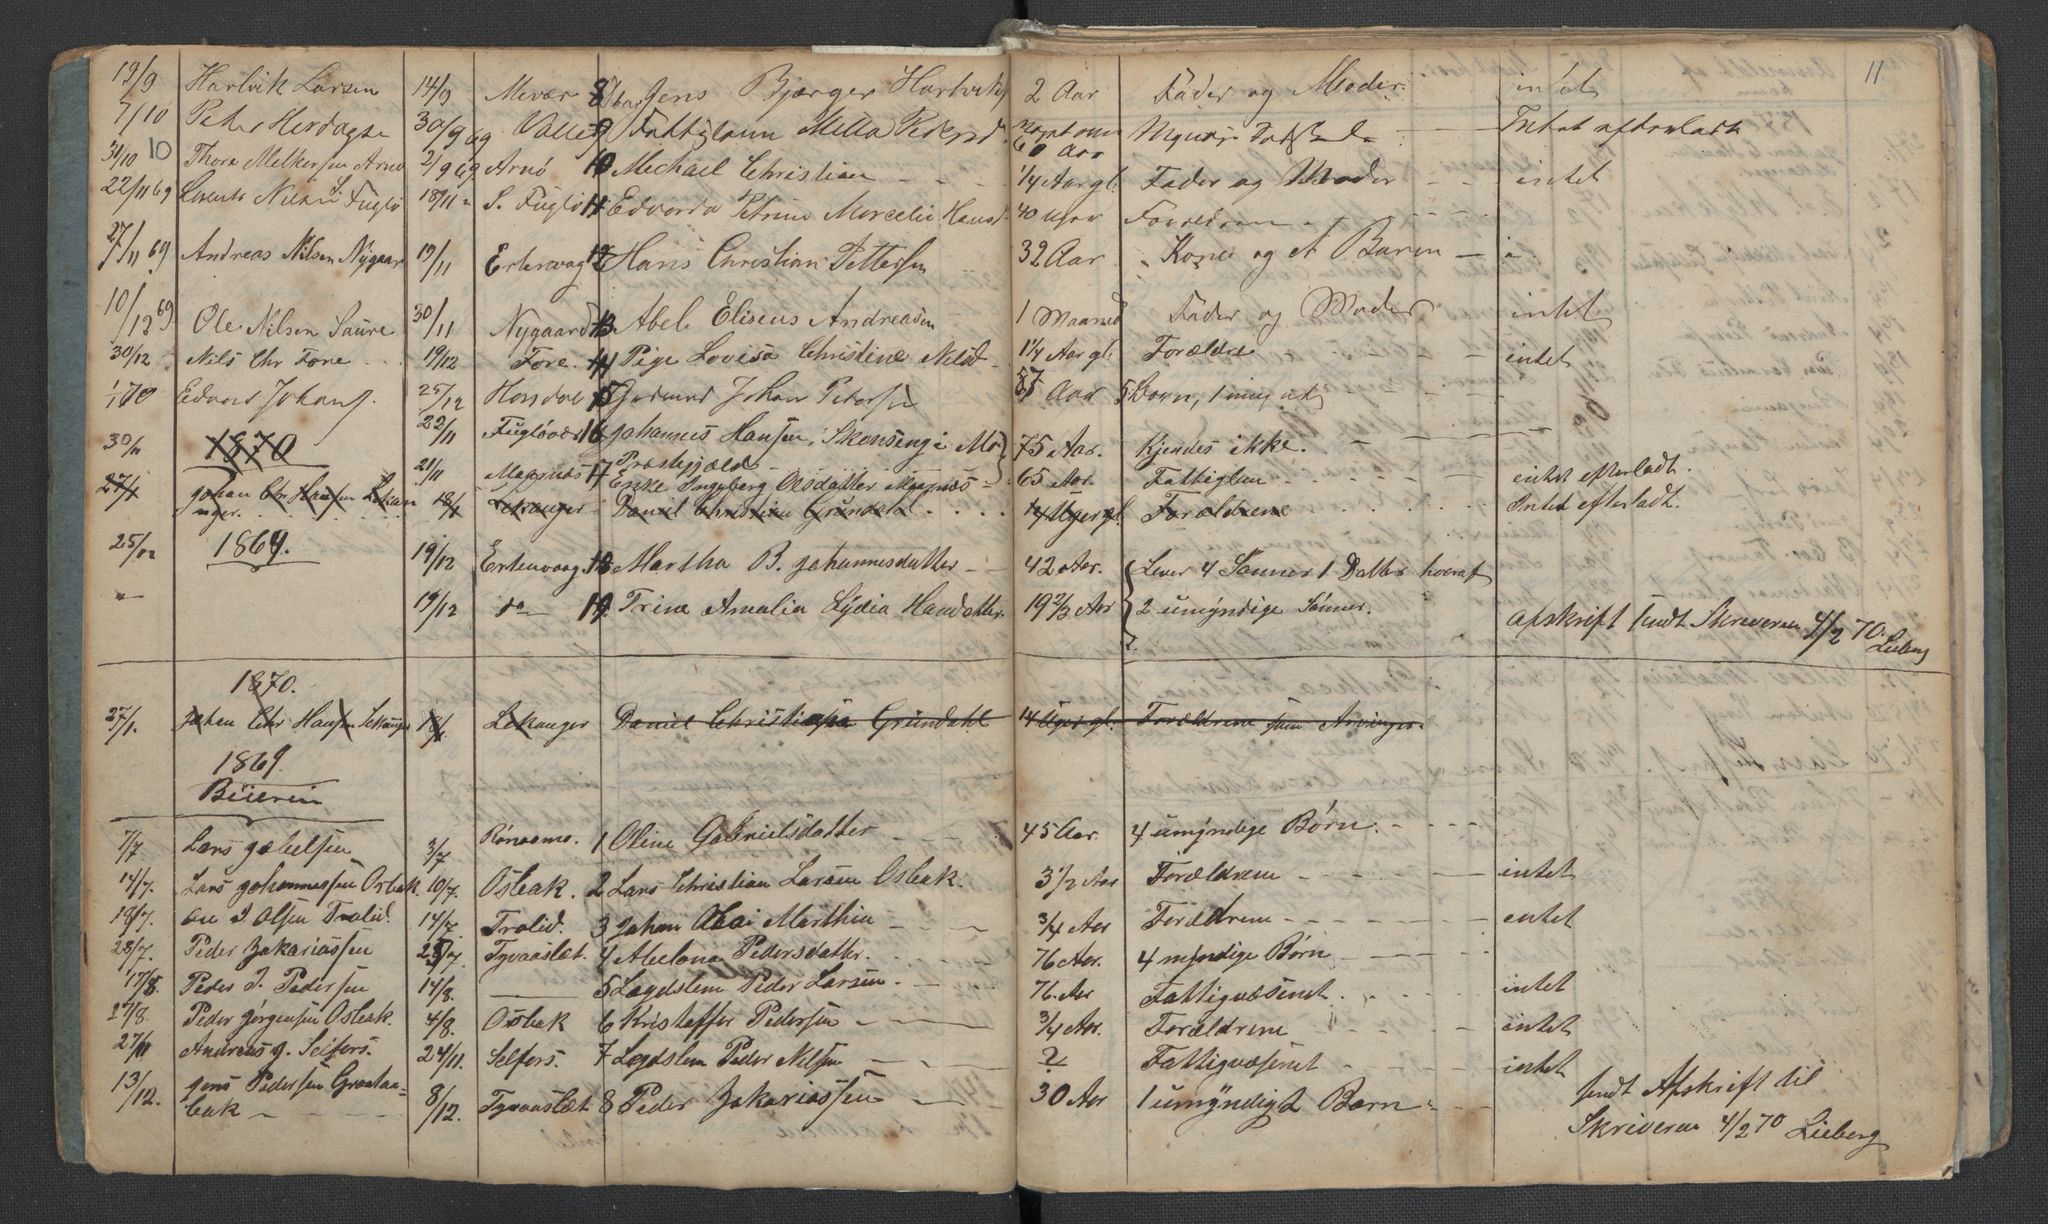 11
19/9 Hartvik Larsen 14/9 Mevær 8 Jens Bjærger Hartvigs 2 Aar Fader og Moder intet
7/10 Peter Herdagsen 30/9 69 Valle 9 Fattiglæm Mella Peders 60 Aar Intet
31/10 10 Thore Melkersen Arnø 2/9 69 Arnø 10 Michael Christian 1/4 Aar gl. Fader og Moder intet
22/11 69 Lorents Nilsen S. Fuglø 18/11 S. Fuglø 11 Edvarda Petrine Marcelie Hansd 40 Forældren
27/11 69 Andreas Nilsen Nygaar 19/11 Estenvaag 12 Hans Christian Pettersen 32 Aar Kone og et Baren
10/12 69 Ole Nilsen Saure 30/11 Nygaard 13 Abel Eliseus Andreasen 1 Maaned Fader og Moder intet
30/12 Nils Chr Fore 19/12 Fore 14 Pige Lovisa Christine Nilsd 1 1/4 Aar gl. Forældre intet
1/1 70 Edvard Johans. 25/12 Horsdal 15 Gudmund Johan Petersen 87 Aar 5 Børn,
30/11 1870 22/11 Fugløvær 16 Johannes Hansen, Skonseng i Mo 75 Aar. Kjendes ikke.
Præstegjæld
21/11 Mæsnæs 17 Enke Ingeberg Olsdatter Mæsnæs 65 Aar. Fattiglem intet efterladt.
27/1 Johan Chr Hansen Lekan 18/1 Lekanger Daniel Christian Grundahl 14 Uger gl. Forældrene Intet efterladt.
nger.
25/12 1869. 19/12 Estenvaag 18 Martha B. Johannesdatter 42 Aar. Lever 4 Sønner 1 Datter hvoraf
" 19/12 do 19 Trine Amalia Lydia Hansdatter 19 2/3 Aar 2 umyndige Sønner.
Afskrift sendt Skriveren 4/2 70. Lieberg
1870.
27/1. Johan Chr Hansen Lekanger 18/1 Lekanger Daniel Christian Grundahl 14 Uger gl. Forældrene som Arvinger
1869.
Beieren
7/7 Lars Jakelsen 3/7 Rønaamo. 1 Oline Gabrielsdatter 45 Aar. 4 umyndige Børn.
14/7. Lars Johannessen Osbak 10/7. Osbak. 2 Lars Christian Larsen Osbak. 3 1/2 Aar Forældrene intet
18/7. Ole J Olsen Tralid. 14/7 Tralid. 3 Johan Olai Marthin 3/4 Aar Forældrene intet
28/7. Peder Zakariassen 25/7. Tyvaaslæt. 4 Abelona Pedersdatter. 76 Aar. 4 myndige Børn
17/8. Peder J. Pedersen 14/8. 5 Lægdslem Peder Larsen 76. Aar Fattigvæsenet intet
27/8 Peder Jørgensen Osbak. 4/8. Osbak 6 Kristoffer Pedersen 3/4 Aar. Forældrene intet
27/11 Andreas J. Selfors. 24/11. Selfors. 7 Lægdslem Peder Nilsen ? Fattigvæsenet intet
13/12. Jens Pedersen Grataa- 8/12. Tyvaaslæt 8 Peder Zakariassen 30 Aar 1 umyndigt Barn sendt Afskrift til
bak Skriveren 4/2 70 Lieberg